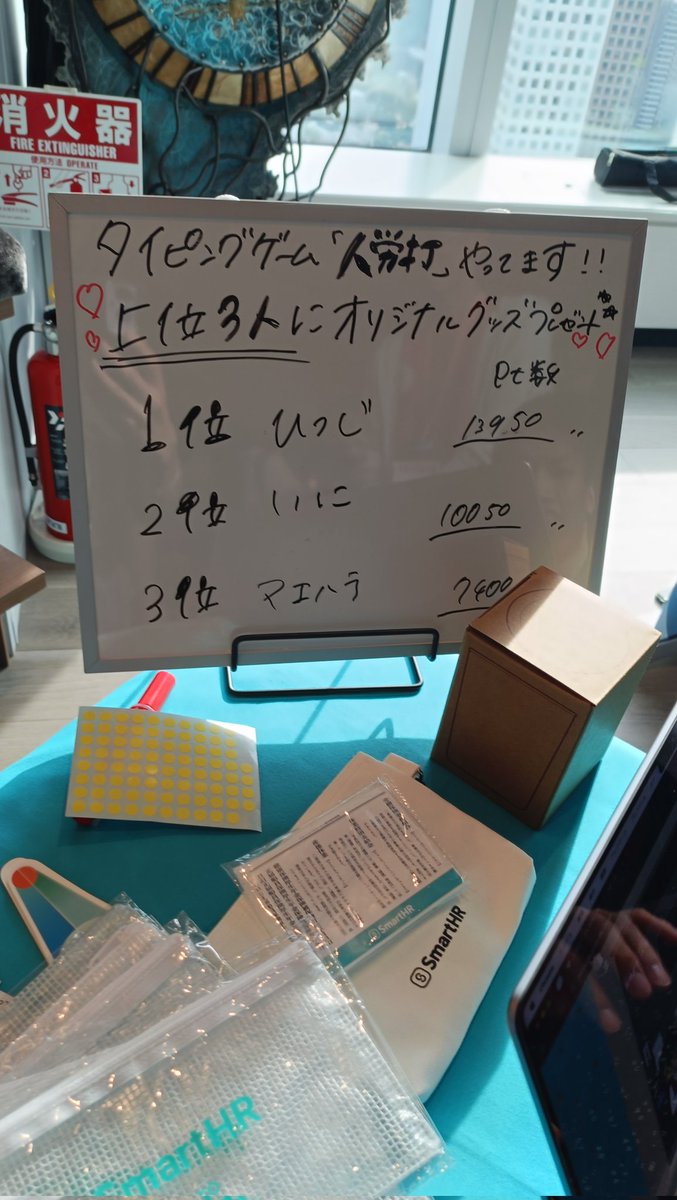 消火器
FIRE EXTINGUISHER
使用方法 OPERATE
タイピングゲーム「人労打」やってます!!
上位3人にオリジナルグッズプレゼント
Pt数
1位 ひつじ 13950
2位 いいに 10050
3位 マエハラ 7400
SmartHR
SmartHR
SmartHR